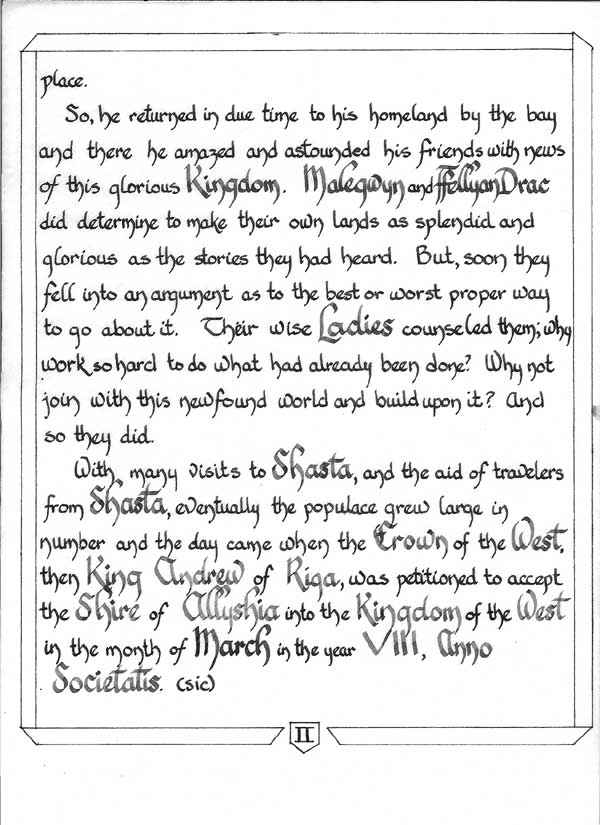 place.
So, he returned in due time to his homeland by the bay
and there he amazed and astounded his friends with news
of this glorious Kingdom. Malegwyn and ffellyan Drac
did determine to make their own lands as splendid and
glorious as the stories they had heard. But, soon they
fell into an argument as to the best or worst proper way
to go about it. Their wise Ladies counseled them; why
work so hard to do what had already been done? Why not
join with this newfound world and build upon it? And
so they did.
With, many visits to Shasta, and the aid of travelers
from Shasta, eventually the populace grew large in
number and the day came when the Crown of the West,
then King Andrew of Riga, was petitioned to accept
the Shire of Allyshia into the Kingdom of the West
in the month of March in the year VIII, Anno
Societatis. (sic)
II